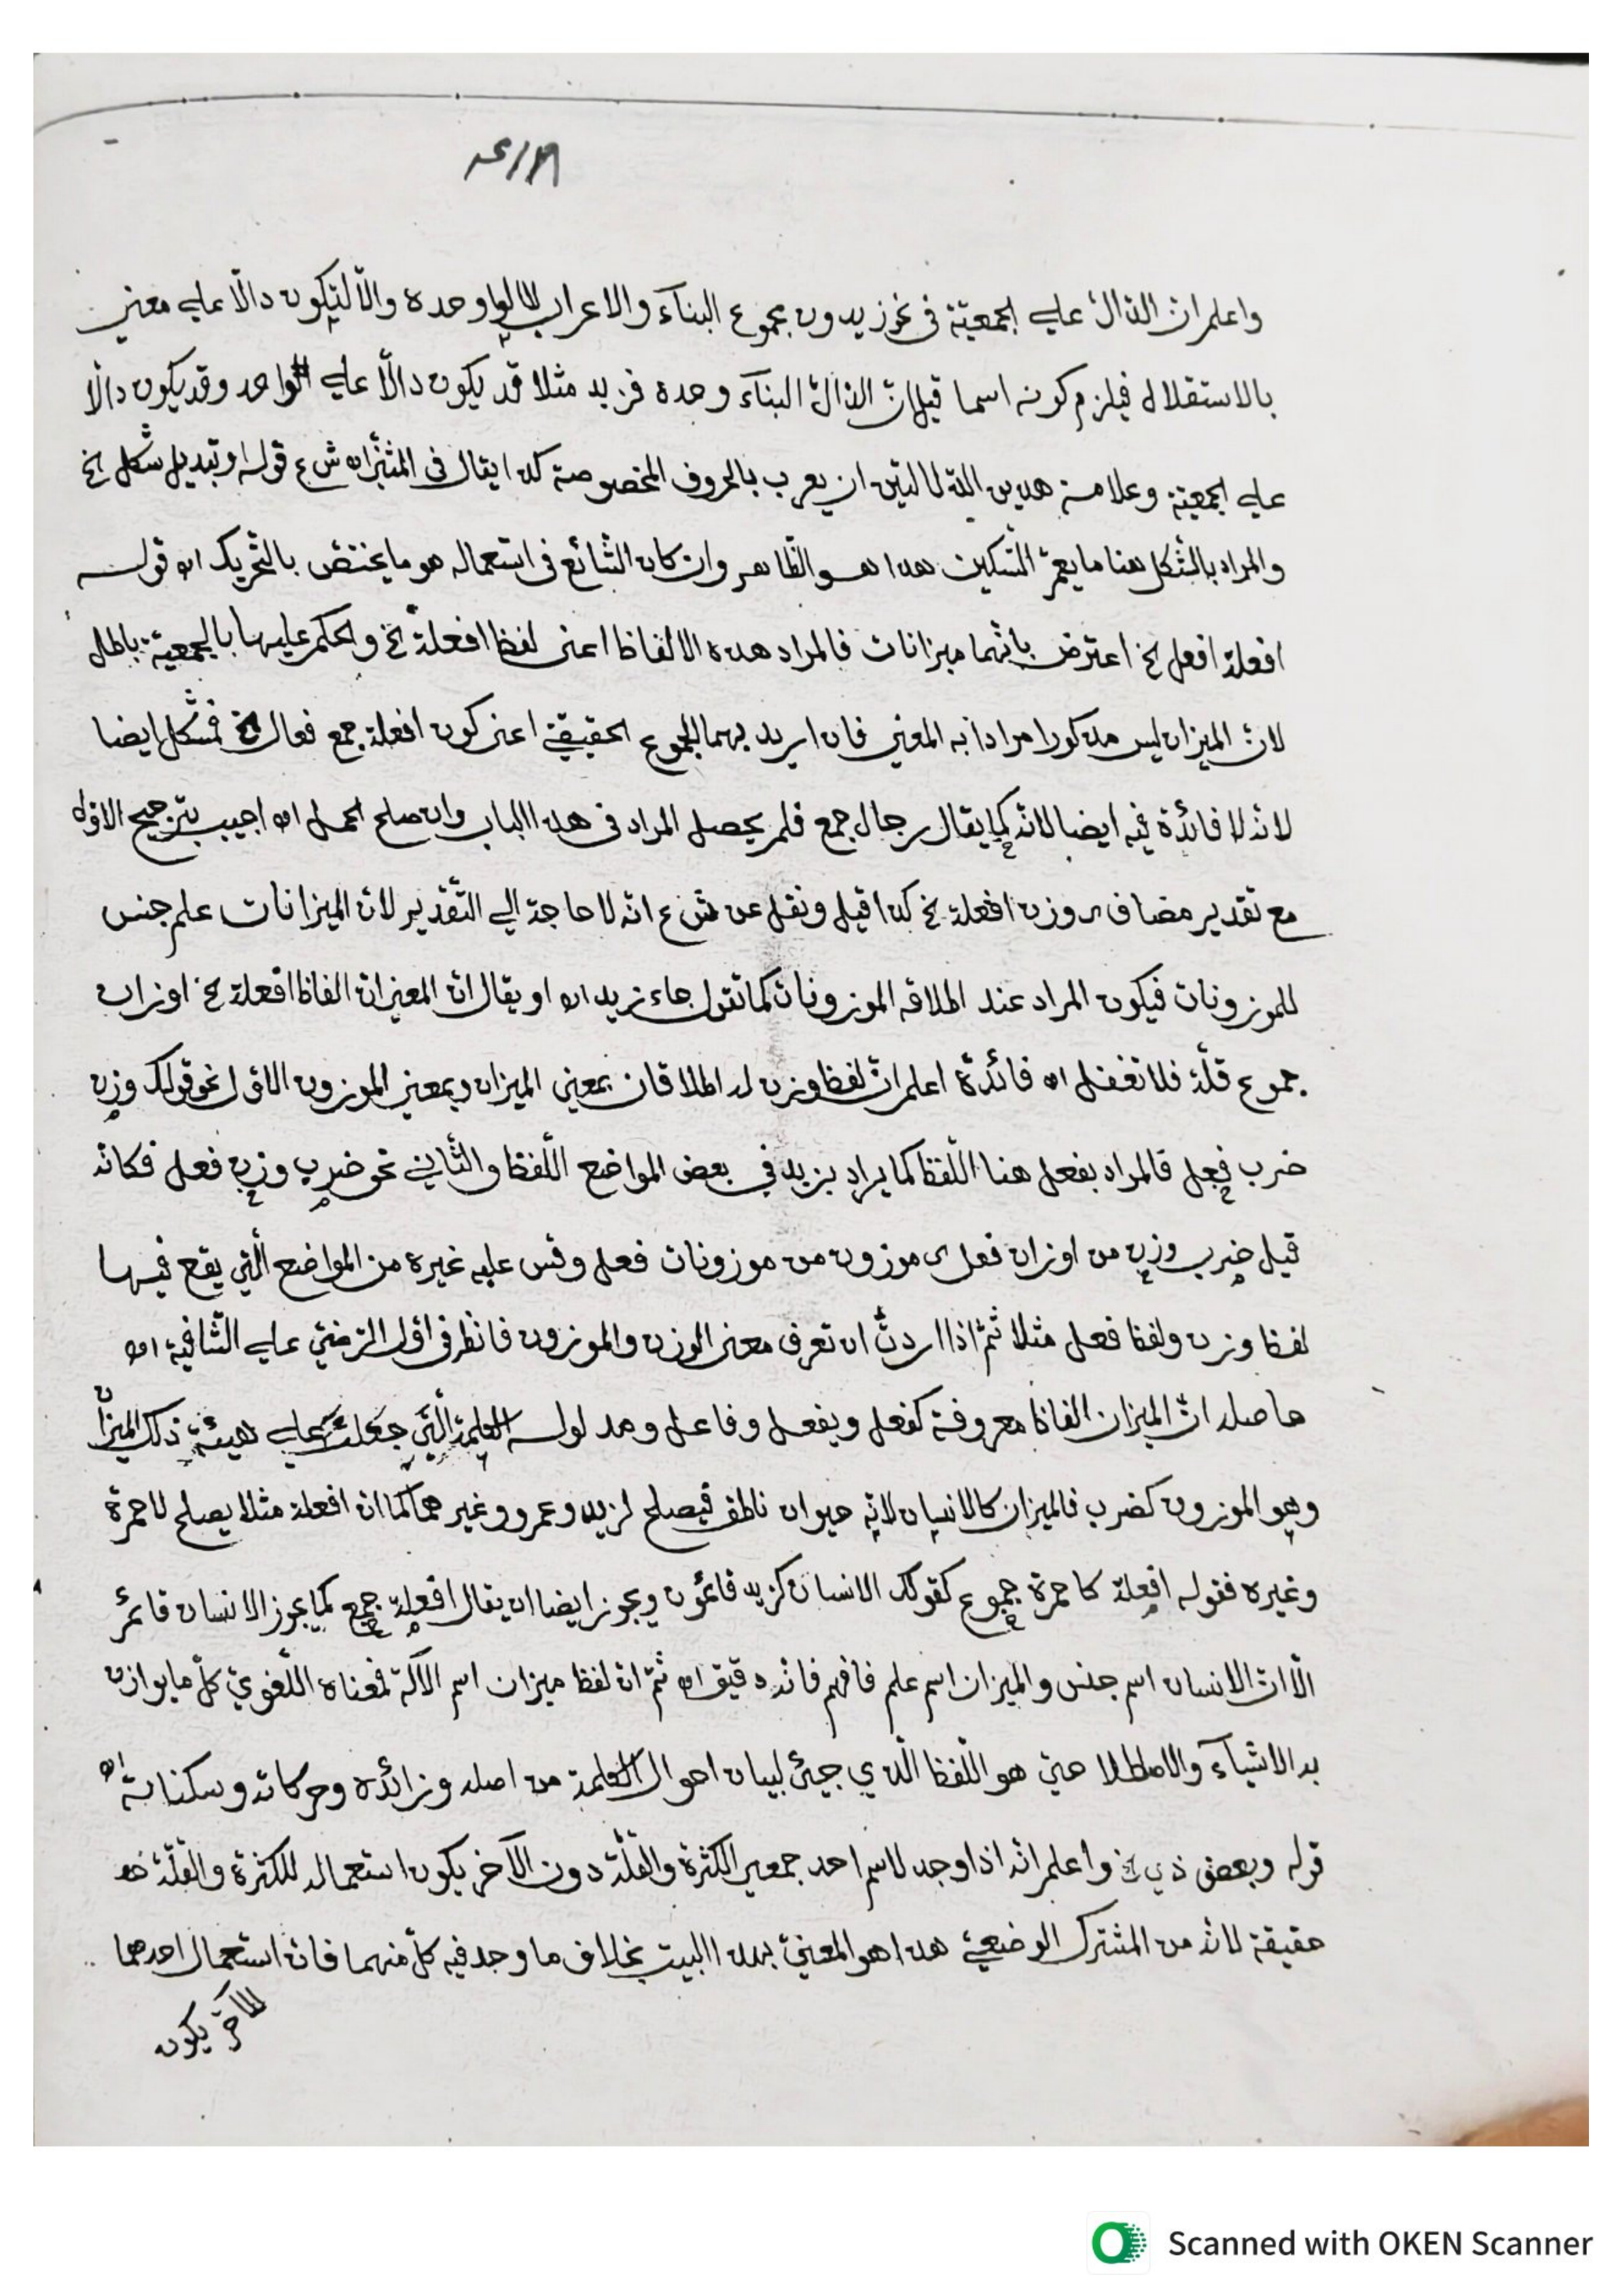 واعلم ان الدال على الجمعية في نحو زيدون مجموع البناء والاعراب لا الواو وحده والا لتكون دالا على معنى
بالاستقلال فيلزم كونه اسما قيل ان الدال البناء وحده فزيد مثلا قد يكون دالا على الواحد وقد يكون دالا
على الجمعية وعلامة هذين الدلالتين ان يعرب بالحروف المخصوصة كذا يقال في المثنى اه ش ع قوله او تبديل شكل الخ
والمراد بالشكل هنا ما يعم التسكين هذا هو الظاهر وان كان الشائع في استعماله هو ما يختص بالتحريك اه قوله
افعلة افعل الخ اعترض بانهما ميزانات فالمراد هذه الالفاظ اعنى لفظ افعلة الخ والحكم عليها بالجمعية باطل
لان الميزان ليس مذكورا مرادا به المعنى فان اريد بهما الجموع الحقيقي اعنى كون افعلة جمع فعال الخ فمشكل ايضا
لانه لا فائدة فيه ايضا لانه كما يقال رجال جمع فلم يحصل المراد في هذا الباب وان صلح الحمل اه اجيب بترجيح الاول
مع تقدير مضاف اى وزن افعلة الخ كذا قيل ونقل عن ش ع انه لا حاجة الى التقدير لان الميزانات علم جنس
للموزونات فيكون المراد عند اطلاقه الموزونات كما تقول جاء زيد اه او يقال ان المعنى ان الفاظ افعلة الخ اوزان
جموع قلة فلا تغفل اه فائدة اعلم ان لفظ وزن له اطلاقان بمعنى الميزان وبمعنى الموزون الاول نحو قولك وزن
ضرب فعل فالمراد بفعل هنا اللفظ كما يراد بزيد في بعض المواضع اللفظ والثاني نحو ضرب وزن فعل فكانه
قيل ضرب وزن من اوزان فعل اى موزون من موزونات فعل وقس عليه غيره من المواضع التي يقع فيها
لفظ وزن ولفظ فعل مثلا ثم اذا اردت ان تعرف معنى الوزن والموزون فانظر في اول الرضي على الشافية اه
حاصله ان الميزان الفاظ معروفة كفعل ويفعل وفاعل ومدلوله الكلمة التي جعلت على هيئة ذلك الميزان
وهو الموزون كضرب فالميزان كالانسان لانه حيوان ناطق فيصلح لزيد وعمرو وغيرهما كما ان افعلة مثلا يصلح لاحمرة
وغيره فقوله افعلة كاحمرة جموع كقولك الانسان كزيد قائمون ويجوز ايضا ان يقال افعلة جمع كما يجوز الانسان قائم
الا ان الانسان اسم جنس والميزان اسم علم فافهم فانه دقيق اه ثم ان لفظ ميزان اسم الآلة فمعناه اللغوي كل ما يوازن
به الاشياء والاصطلاحي هو اللفظ الذي جيئ لبيان احوال الكلمة من اصله وزائده وحركاته وسكناته اه
قوله وبعض ذي الخ واعلم انه اذا وجد لاسم احد جمعي الكثرة والقلة دون الآخر يكون استعماله للكثرة والقلة
حقيقة لانه من المشترك الوضعي هذا هو المعنى بهذا البيت بخلاف ما وجد فيه كل منهما فان استعمال احدهما
للآخر يكون
Scanned with OKEN Scanner